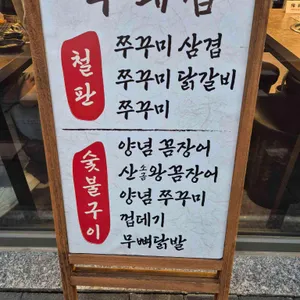 철판
쭈꾸미 삼겹
쭈꾸미 닭갈비
쭈꾸미
숯불구이
양념 꼼장어
산소금왕꼼장어
양념 쭈꾸미
껍데기
무뼈닭발